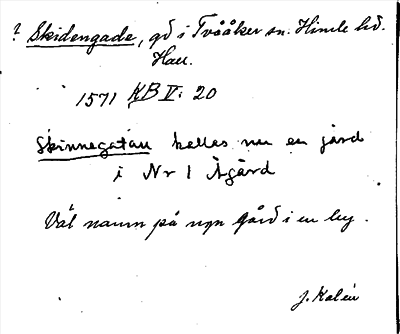 ? Skidengade, gd i Tvååker sn. Himle hd.
Hall.
1571 KB V: 20
Skinnegatan kallas nu en jård
i Nr 1 Ågård
Väl namn på nyn gård i en by.
J. Kalén